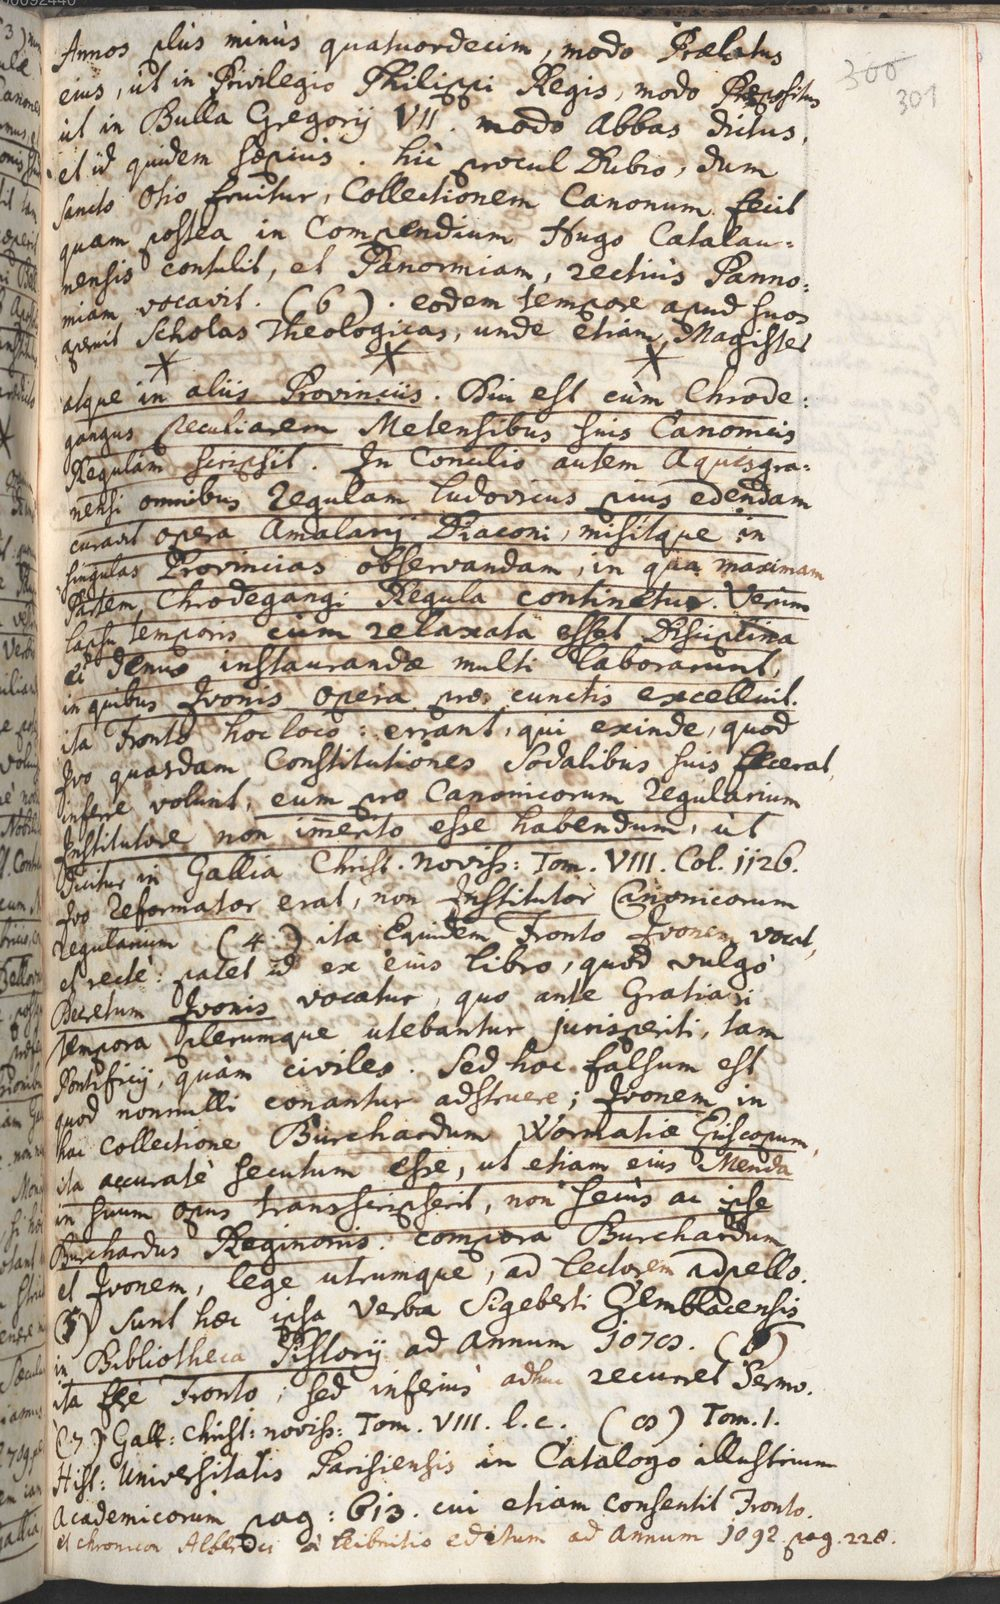 300
301
Annos plùs minùs quatuordecim, modo Prælatus
eius, ut in Privilegio Philippi Regis, modo Præpositus
ut in Bulla Gregorij VII. modo Abbas dictus,
et id quidem sæpius. hic procul Dubio, dum
sancto Otio fruitur, Collectionem Canonum fecit
quam postea in Compendium Hugo Catalau=
nensis contulit, et Panormiam, rectiùs Panno=
miam vocavit. (6). eodem tempore apud suos
aperuit Scholas Theologicas, unde etiam Magister
* * *
atque in aliis Provinciis. Diu est cùm Chrode=
gangus peculiarem Metensibus suis Canonicis
Regulam scripsit. In Concilio autem Aquisgra=
nensi omnibus regulam Ludovicus pius edendam
curavit opera Amalarij Diaconi, misitque in
singulas Provincias observandam, in qua maximam
Partem Chrodegangi Regula continetur. Verùm
lapsu temporis cùm relaxata esset Disciplina
ei denuo instaurandæ multi laborarunt,
in quibus Ivonis opera præ cunctis excelluit.
ita Fronto hoc loco: errant, qui exinde, quod
Ivo quasdam Constitutiones Sodalibus suis fecerat,
inferre volunt, eum pro Canonicorum Regularium
Institutore non immerito esse habendum, ut
dicitur in Gallia Christ. noviss: Tom. VIII. Col. 1126.
Ivo Reformator erat, non Institutor Canonicorum
regularium (4.) ita Equidem Fronto Ivonem vocat,
et recte: patet id ex eius libro, quod vulgò
Decretum Ivonis vocatur, quo ante Gratiani
tempora plerumque utebantur jurisperiti, tam
Pontificij, quàm civiles. Sed hoc falsum est
quod nonnulli conantur adstruere; Ivonem in
hac collectione Burchardum Wormatiæ Episcopum,
ita accuratè secutum esse, ut etiam eius Menda
in suum opus transscripserit, non secùs ac ipse
Burchardus Reginonis: compara Burchardum
et Ivonem, lege utrumque, ad lectorem adpello.
(5) Sunt hæc ipsa verba Sigeberti Gemblacensis
in Bibliotheca Pistorij ad Annum 1078. (6)
ita fere Fronto; sed inferiùs adhuc recurret Sermo.
(7) Gall: Christ: noviss: Tom. VIII. l. c. (8) Tom. 1.
Hist: Universitatis Parisiensis in Catalogo illustrium
Academicorum pag: 613. cui etiam consentit Fronto.
et chronicon Alberici à Leibnitio editum ad Annum 1092. pag. 228.